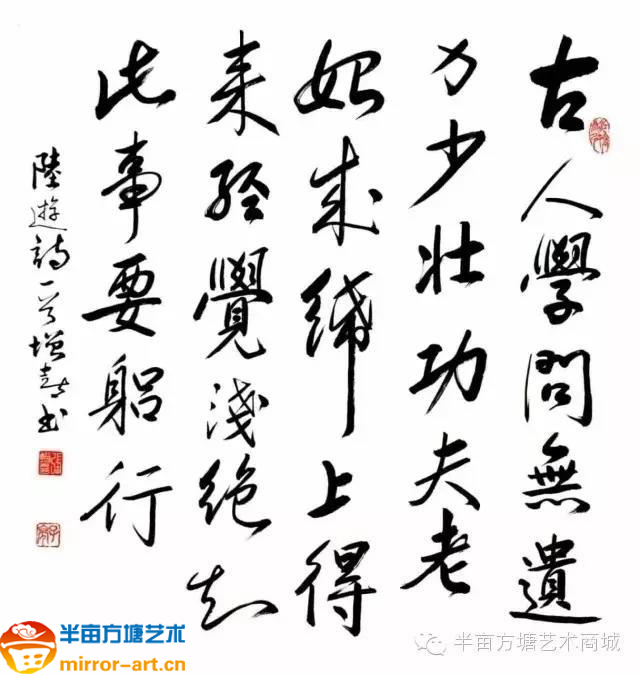 古人學問無遺
力少壯功夫老
始成紙上得
來終覺淺絕知
此事要躬行
陸遊詩一首增喜书
半亩方塘艺术
mirror-art.cn
半亩方塘艺术商城